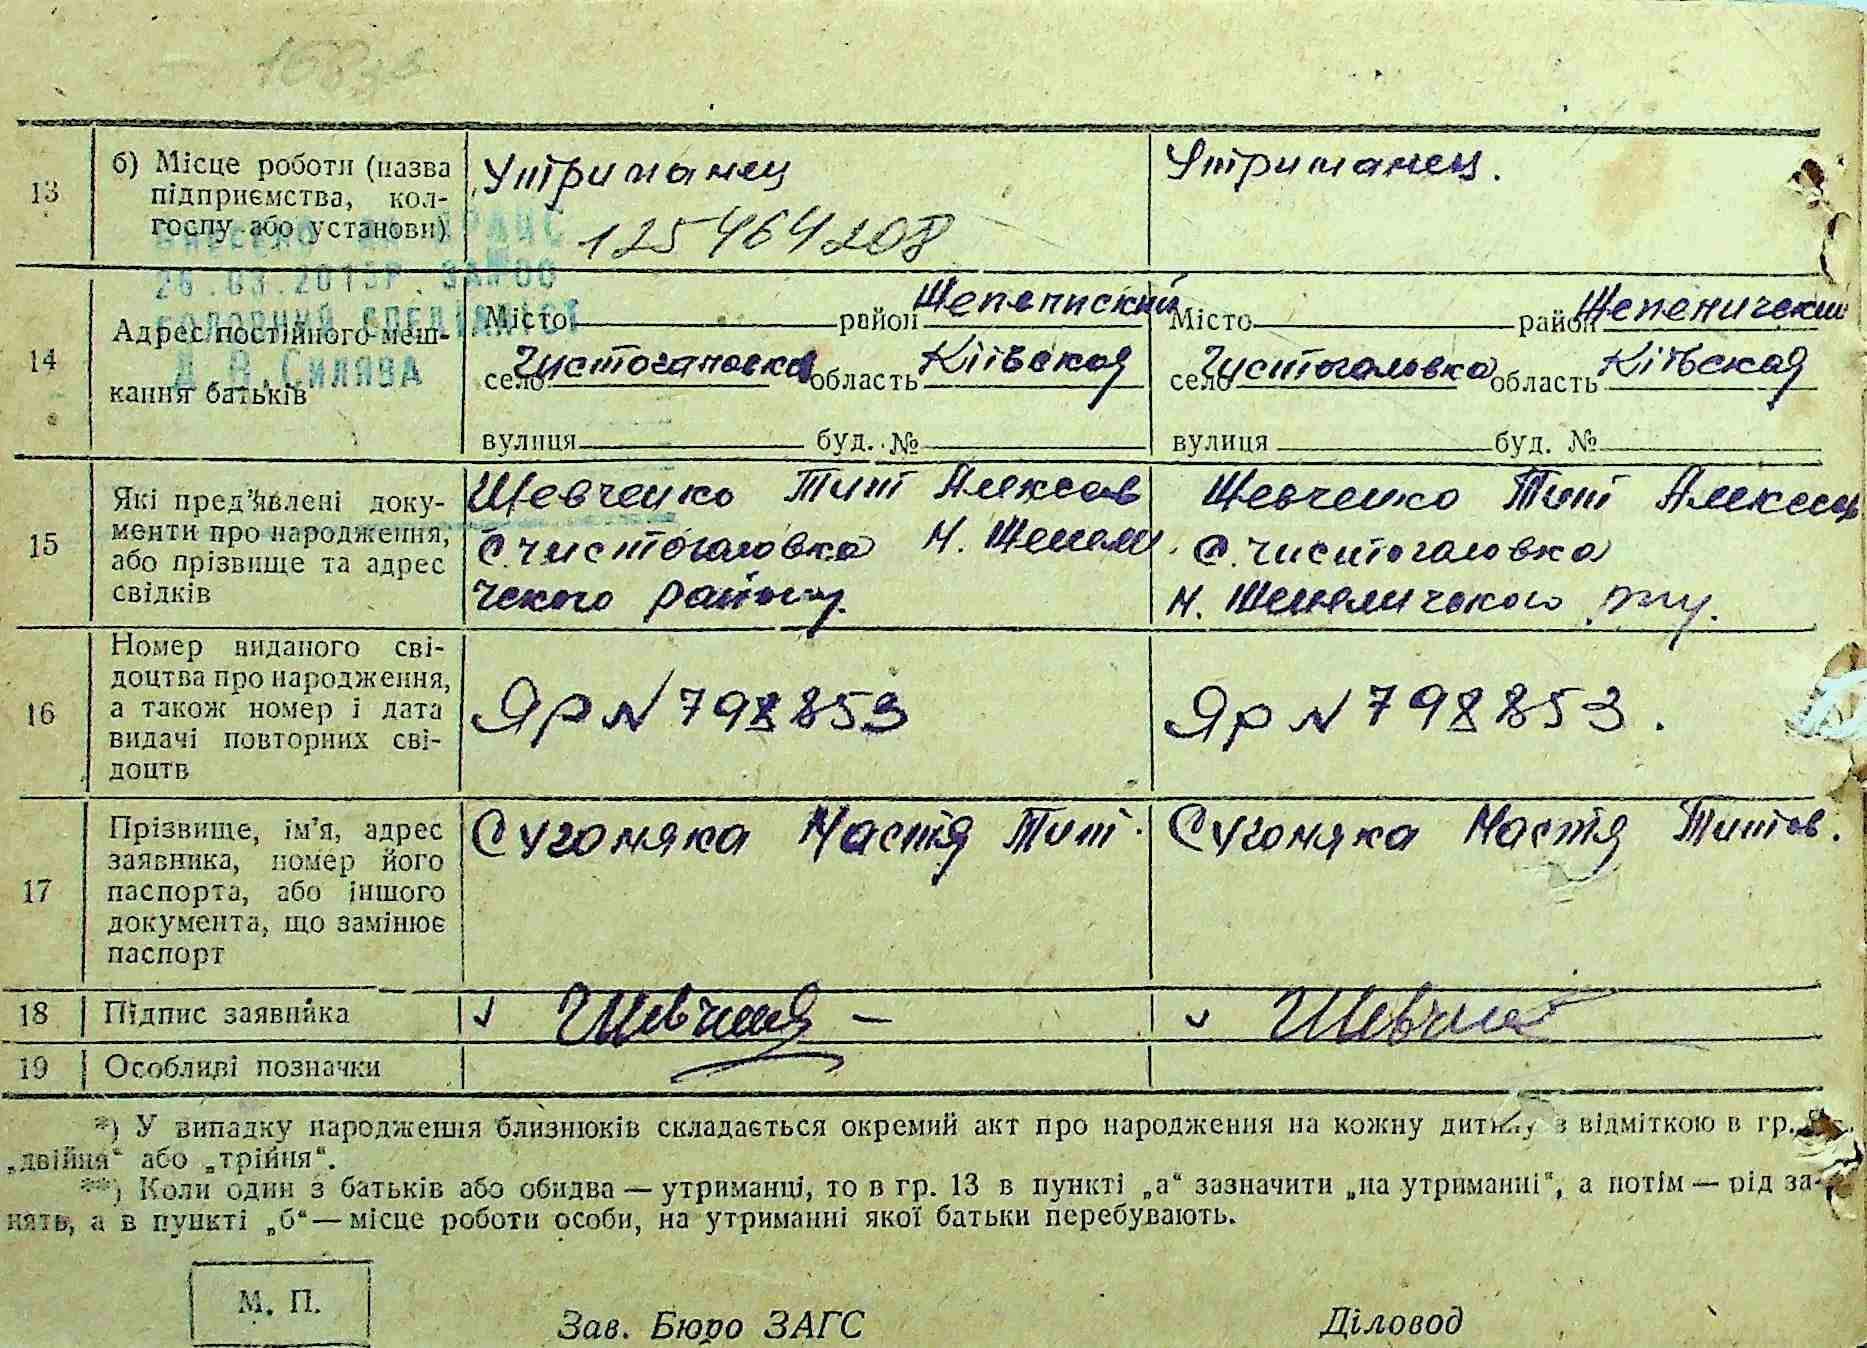 13 б) Місце роботи (назва Утриманец Утриманец.
підприємства, кол-
госпу або установи) 125464208
ВНЕСЕНО ДРАЦС
26.03.2015Р.
ГОЛОВНИЙ СПЕЦІАЛІСТ
Д.В.СИЛЯВА
14 Адрес постійного меш- Місто район Шепеличский Місто район Шепеничский
кання батьків село Чистогаловка область Кіівская село Чистогаловка область Кіівская
вулиця буд. № вулиця буд. №
15 Які пред'явлені доку- Шевченко Тит Алексеев Шевченко Тит Алексеев
менти про народження, с. Чистогаловка Н. Шепели с. Чистогаловка
або прізвище та адрес ческого району. Н. Шепеличского р-ну.
свідків
16 Номер виданого сві-
доцтва про народження,
а також номер і дата ЯР № 798853 ЯР № 798853.
видачі повторних сві-
доцтв
17 Прізвище, ім'я, адрес Сугоняка Настя Тит. Сугоняка Настя Титов.
заявника, номер його
паспорта, або іншого
документа, що замінює
паспорт
18 Підпис заявника
19 Особливі позначки
*) У випадку народження близнюків складається окремий акт про народження на кожну дитину з відміткою в гр.
„двійня“ або „трійня“.
**) Коли один з батьків або обидва — утриманці, то в гр. 13 в пункті „а“ зазначити „на утриманні“, а потім — рід за-
нять, а в пункті „б“ — місце роботи особи, на утриманні якої батьки перебувають.
М. П.
Зав. Бюро ЗАГС Діловод